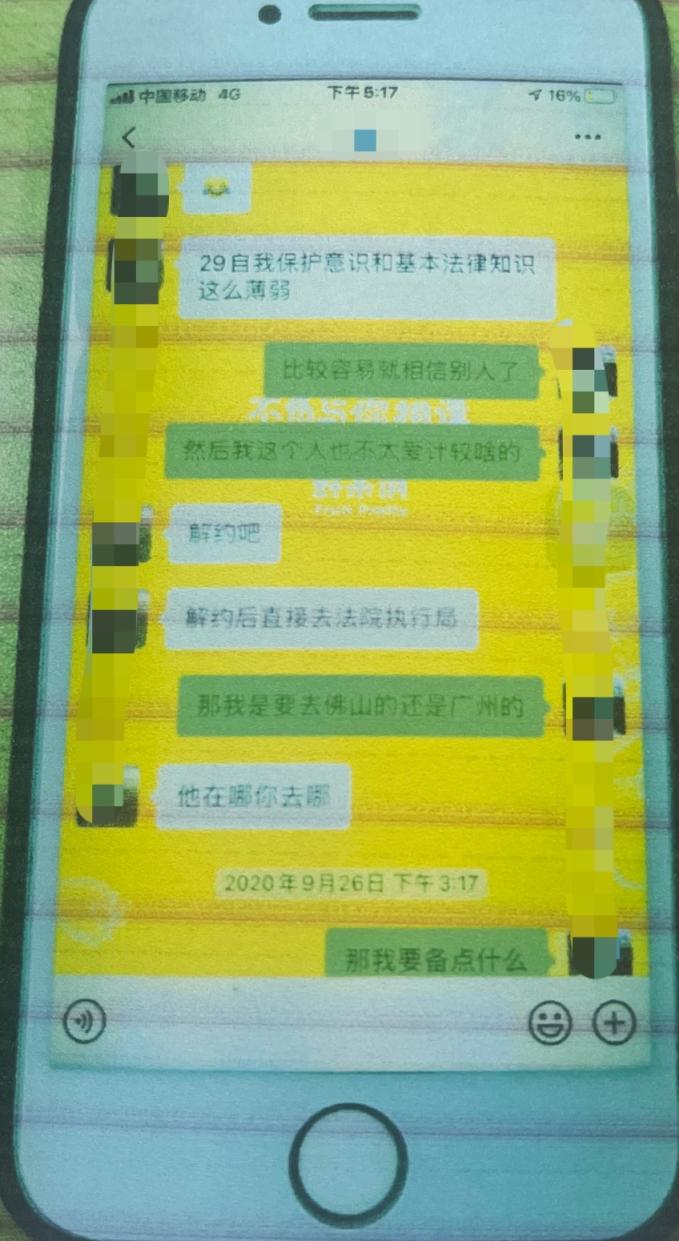 中国移动 4G 下午5:17 16%
29自我保护意识和基本法律知识
这么薄弱
比较容易就相信别人了
然后我这个人也不太爱计较啥的
解约吧
解约后直接去法院执行局
那我是要去佛山的还是广州的
他在哪你去哪
2020年9月26日 下午3:17
那我要备点什么